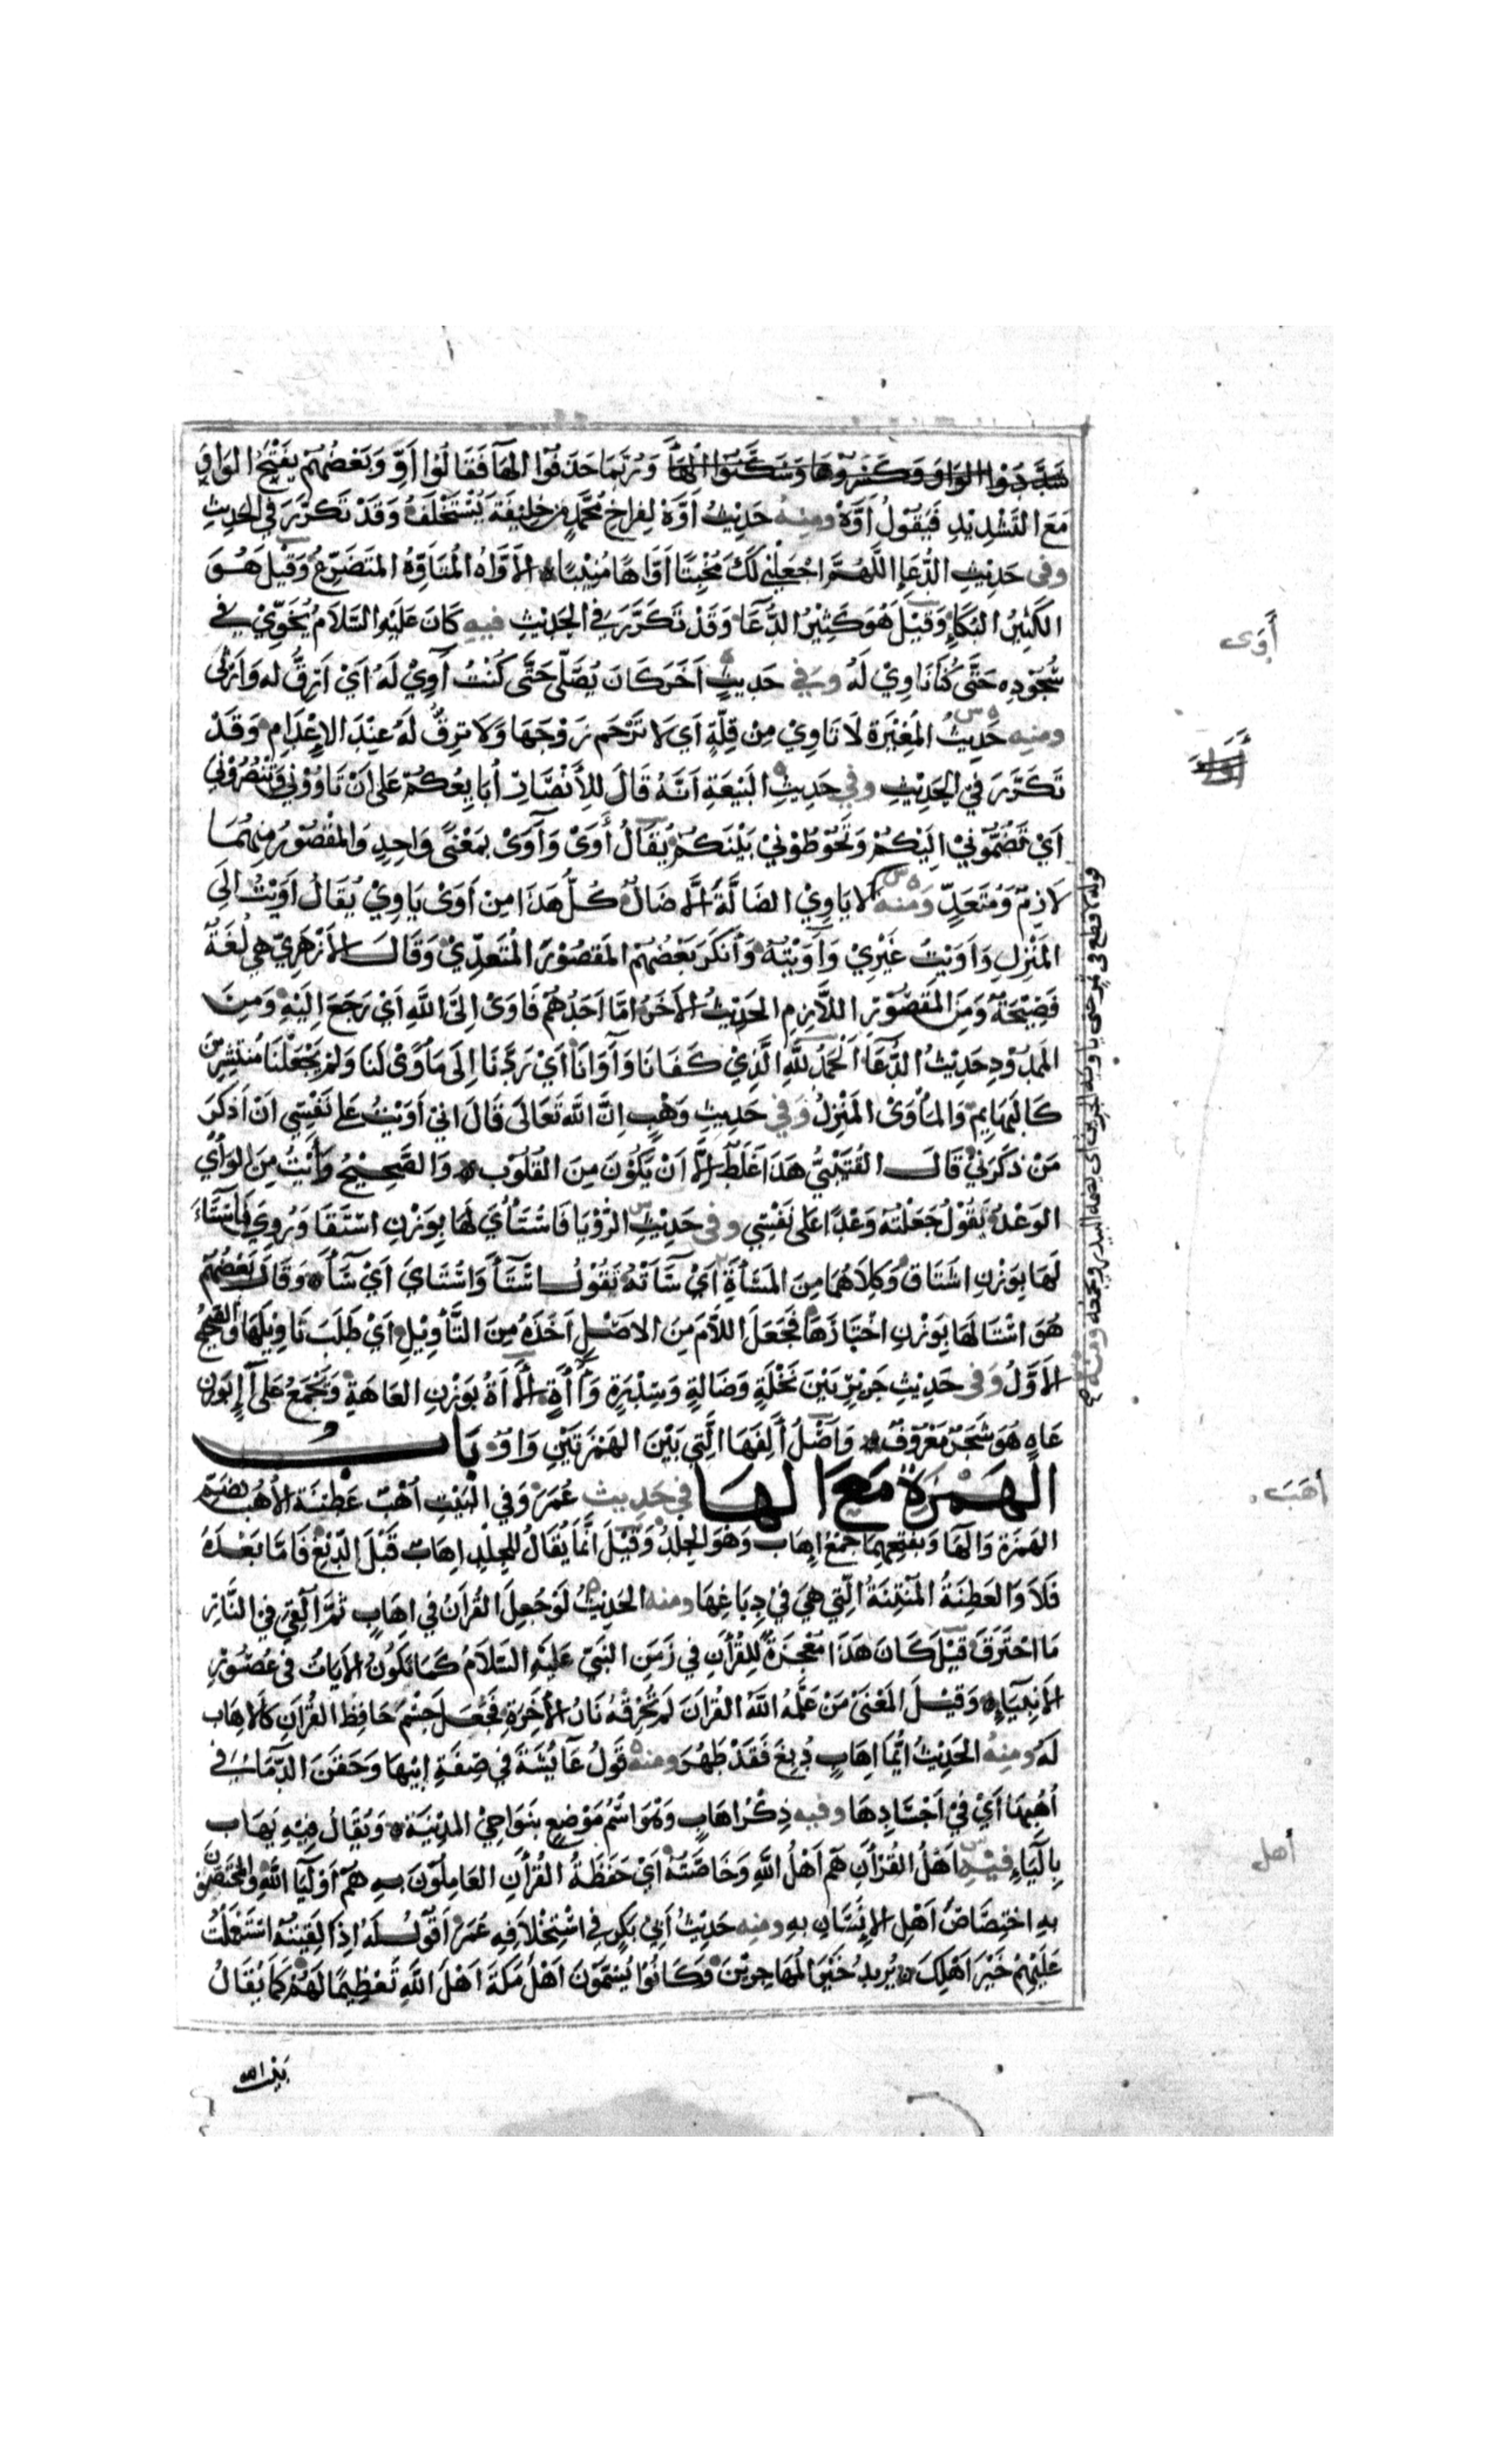 شَدَّدُوا الوَاوَ وَكَسَرُوهَا وَسَكَّنُوا الهَآءَ وَرُبَّمَا حَذَفُوا الهَآءَ فَقَالُوا أَوِّ وَبَعْضُهُمْ يَفْتَحُ الوَاوَ
مَعَ التَّشْدِيْدِ فَيَقُوْلُ أَوَّهْ ومنه حَدِيْثُ أَوَّهْ لِفِرَاخِ مُحَمَّدٍ مِنْ خَلِيْفَةٍ يُسْتَخْلَفُ وَقَدْ تَكَرَّرَ فِي الحَدِيْثِ
وفى حَدِيْثِ الدُّعَآءِ اللَّهُمَّ اجْعَلْنِي لَكَ مُخْبِتًا أَوَّاهًا مُنِيْبًا الأَوَّاهُ المُتَأَوِّهُ المُتَضَرِّعُ وَقِيْلَ هُوَ
الكَثِيْرُ البُكَآءِ وَقِيْلَ هُوَ كَثِيْرُ الدُّعَآءِ وَقَدْ تَكَرَّرَ فِي الحَدِيْثِ فيه كَانَ عَلَيْهِ السَّلَامُ يُخَوِّيْ فِي
سُجُوْدِهِ حَتَّى كُنَّا نَاوِيْ لَهُ وَفي حَدِيْثٍ آخَرَ كَانَ يُصَلِّي حَتَّى كُنْتُ آوِيْ لَهُ أَيْ أَرِقُّ لَهُ وَأَرْثِي
ومنه حَدِيْثُ المُغِيْرَةِ لَا تَاوِيْ مِنْ قِلَّةٍ أَي لَا تَرْحَم زَوْجَهَا وَلَا تَرِقُّ لَهُ عِنْدَ الإِعْدَامِ وَقَدْ
تَكَرَّرَ فِي الحَدِيْثِ وفي حَدِيْثِ البَيْعَةِ أَنَّهُ قَالَ لِلأَنْصَارِ أُبَايِعُكُمْ عَلَى أَنْ تَاوُوْنِي وَتَنْصُرُوْنِي
أَيْ تَضُمُّوْنِيْ إِلَيْكُمْ وَتَحُوْطُوْنِيْ بَيْنَكُمْ يُقَالُ أَوَى وَآوَى بِمَعْنًى وَاحِدٍ وَالمَقْصُوْرُ مِنْهُمَا
لَازِمٌ وَمُتَعَدٍّ وَمنه لَا يَاوِيْ الضَالَّةَ إِلَّا ضَالٌّ كُلُّ هَذَا مِنْ أَوَى يَاوِيْ يُقَالُ أَوَيْتُ إِلَى
المَنْزِلِ وَأَوَيْتُ غَيْرِيْ وَآوَيْتُهُ وَأَنْكَرَ بَعْضُهُمْ المَقْصُوْرَ المُتَعَدِّيْ وَقَالَ الأَزْهَرِيّ هِيَ لُغَةٌ
فَصِيْحَةٌ وَمِنَ المَقْصُوْرِ اللَّازِمِ الحَدِيْثُ الأَخَرُ أَمَّا أَحَدُهُمْ فَأَوَى إِلَى اللَّهِ أَيْ رَجَعَ إِلَيْهِ وَمِنَ
المَمْدُوْدِ حَدِيْثُ الدُّعَآءِ الحَمْدُ لِلَّهِ الَّذِيْ كَفَانَا وَآوَانَا أَيْ رَدَّنَا إِلَى مَأْوًى لَنَا وَلَمْ يَجْعَلْنَا مُنْتَشِرِيْنَ
كَالبَهَايِمِ وَالمَأْوَى المَنْزِلُ وَفي حَدِيْثِ وَهْبٍ إِنَّ اللَّهَ تَعَالَى قَالَ إِنِّي أَوَيْتُ عَلَى نَفْسِي أَنْ أَذْكُرَ
مَنْ ذَكَرَنِيْ قَالَ القُتَيْبِيُّ هَذَا غَلَطٌ إِلَّا أَنْ يَكُوْنَ مِنَ القُلُوْبِ وَالصَّحِيْحُ وَأَيْتُ مِنَ الوَأْيِ
الوَعْدِ يَقُوْلُ جَعَلْتُهُ وَعْدًا عَلَى نَفْسِي وفى حَدِيْثِ الرُّؤْيَا فَاسْتَأَىَ لَهَا بِوَزْنِ اسْتَقَا وَرُوِيَ فَاسْتَآءَ
لَهَا بِوَزْنِ اسْتَاقَ وَكِلَاهُمَا مِنَ المَسَأَةِ أَيْ سَآءَتْهُ تَقُوْلُ اسْتَآءَ وَاسْتَاىَ أَيْ سَآءَ وَقَالَ بَعْضُهُمْ
هُوَ اسْتَالَهَا بِوَزْنِ اخْتَارَهَا فَجَعَلَ اللَّامَ مِنَ الاصْلِ أَخَذَهُ مِنَ التَّأْوِيْلِ أَيْ طَلَبَ تَاوِيْلَهَا وَالصَّحِيْحُ
الأَوَّلُ وَفى حَدِيْثِ جَرِيْرٍ بَيْنَ نَخْلَةٍ وَضَالَةٍ وَسِدْرَةٍ وَآءَةٍ الآءَةُ بِوَزْنِ العَاهَةِ وَتُجْمَعُ عَلَى آءٍ بِوَزْنِ
عَاهٍ هُوَ شَجَرٌ مَعْرُوْفٌ وَأَصْلُ أَلِفِهَا الَّتِي بَيْنَ الهَمْزَتَيْنِ وَاوٌ بَابُ
الهَمْزَةِ مَعَ الهَا في حَدِيث عُمَرَ وَفِي البَيْتِ أُهُبٌ عَطِنَةٌ الأُهُبُ بِضَمِّ
الهَمْزَةِ وَالهَآءِ وَبِفَتْحِهِمَا جَمْعُ إِهَابٍ وَهُوَ الجِلْدُ وَقِيْلَ إِنَّمَا يُقَالُ لِلْجِلْدِ إِهَابٌ قَبْلَ الدَّبْغِ فَأَمَّا بَعْدَهُ
فَلَا وَالعَطِنَةُ المُنْتِنَةُ الَّتِي هِيَ فِي دِبَاغِهَا ومنه الحَدِيْثُ لَوْ جُعِلَ القُرْآنُ فِي إِهَابٍ ثُمَّ أُلْقِيَ فِي النَّارِ
مَا احْتَرَقَ قِيْلَ كَانَ هَذَا مُعْجِزَةً لِلْقُرْآنِ فِي زَمَنِ النَّبِيّ عَلَيْهِ السَّلَامُ كَمَا تَكُوْنُ الأَيَاتُ فِى عُصُوْرِ
الأَنْبِيَآءِ وَقِيْلَ المَعْنَى مَنْ عَلَّمَهُ اللَّهُ القُرْآنَ لَمْ تُحْرِقْهُ نَارُ الأَخِرَةِ فَجُعِلَ جِسْمُ حَافِظِ القُرْآنِ كَالإِهَابِ
لَهُ ومنهُ الحَدِيْثُ أَيُّمَا إِهَابٍ دُبِغَ فَقَدْ طَهُرَ ومنه قَوْلُ عَآئِشَةَ فِي صِفَةِ أَبِيْهَا وَحَقَنَ الدِّمَآءَ فِي
أُهُبِهَا أَيْ فِيْ أَجْسَادِهَا وفيه ذِكْرُ اهَابٍ وَهُوَ اسْمُ مَوْضِعٍ بِنَوَاحِيْ المَدِيْنَةِ وَيُقَالُ فِيْهِ يَهَاب
بِاليَآءِ فيْهِ اَهْلُ القُرْآنِ هُمْ أَهْلُ اللَّهِ وَخَاصَّتُهُ أَيْ حَفَظَةُ القُرْآنِ العَامِلُوْنَ بِهِ هُمْ أَوْلِيَآءُ اللَّهِ وَالمُخْتَصُّوْنَ
بِهِ اخْتِصَاصَ أَهْلِ الإِنْسَانِ بِهِ ومنه حَدِيْثُ أَبِيْ بَكْرٍ فِي اسْتِخْلَافِهِ عُمَرَ أَقُوْلُ لَهُ إِذَا لَقِيْتُهُ اسْتَعْمَلْتُ
عَلَيْهِمْ خَيْرَ أَهْلِكَ يُرِيدُ خَيْرَ المُهَاجِرِيْنَ وَكَانُوا يُسَمُّوْنَ أَهْلَ مَكَّةَ أَهْلَ اللَّهِ تَعْظِيْمًا لَهُمْ كَمَا يُقَالُ
بَيْتُ الله
أَوَى
أهَبَ
أهل